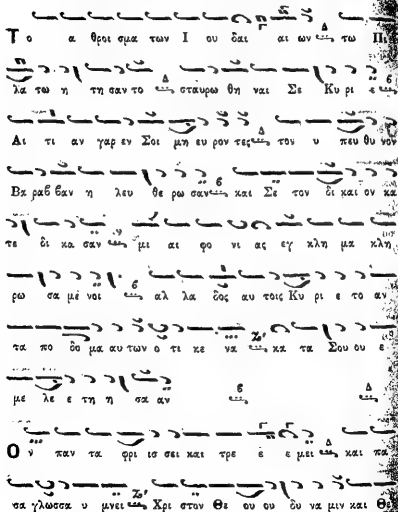 Το α θροι σμα των Ι ου δαι αι ων Δ τω Πι
λα τω η τη σαν το Δ σταυρω θη ναι Σε Κυ ρι ε
Αι τι αν γαρ εν Σοι μη ευ ρον τες Δ τον υ πευ θυ νον
Βα ραβ βαν η λευ θε ρω σαν και Σε τον δι και ον κα
τε δι κα σαν μι αι φο νι ας εγ κλη μα κλη
ρω σα μέ νοι αλ λα δος αυ τοις Κυ ρι ε το αν
τα πο δο μα αυ των ο τι κε να κα τα Σου ου ε
με λε ε τη η σα αν
Ον παν τα φρι ισ σει και τρε ε ε μει Δ και πα
σα γλωσσα υ μνει Χρι στον Θε ου ου δυ να μιν και Θε